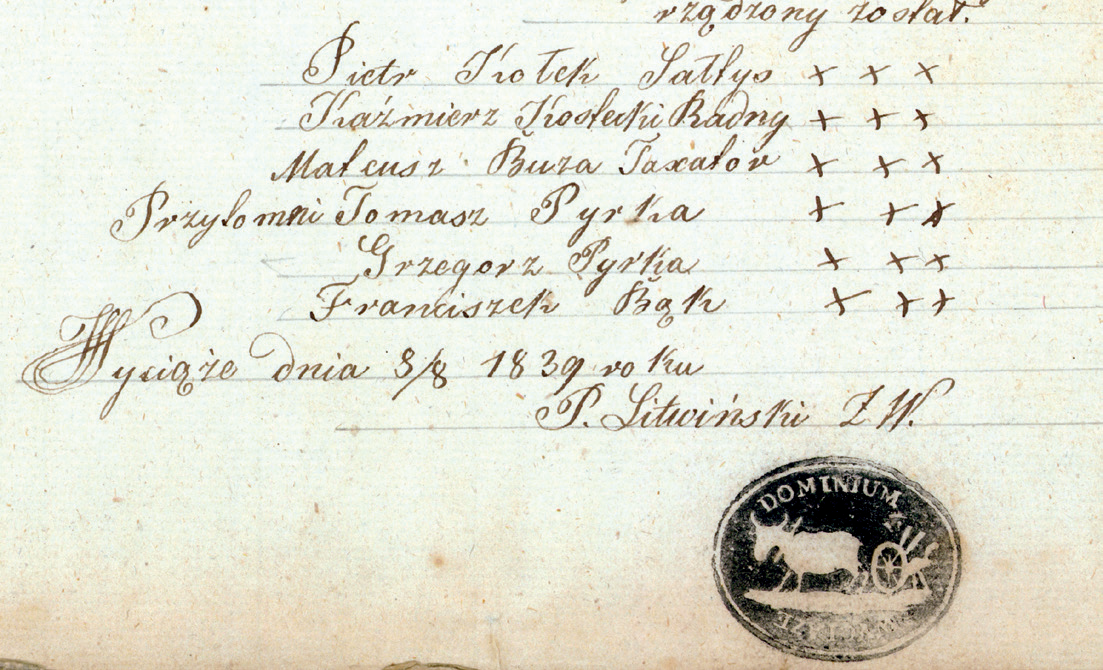 rządzony został.
Pietr Kołek Sałtys × × ×
Kaźmierz Kosłecki Radny × × ×
Mateusz Buza Taxator × × ×
Przytomni Tomasz Pyrka × × ×
Grzegorz Pyrka × × ×
Franciszek Bąk × × ×
Wyciąże dnia 3/8 1839 roku
P. Litwiński Z. W.
DOMINIUM